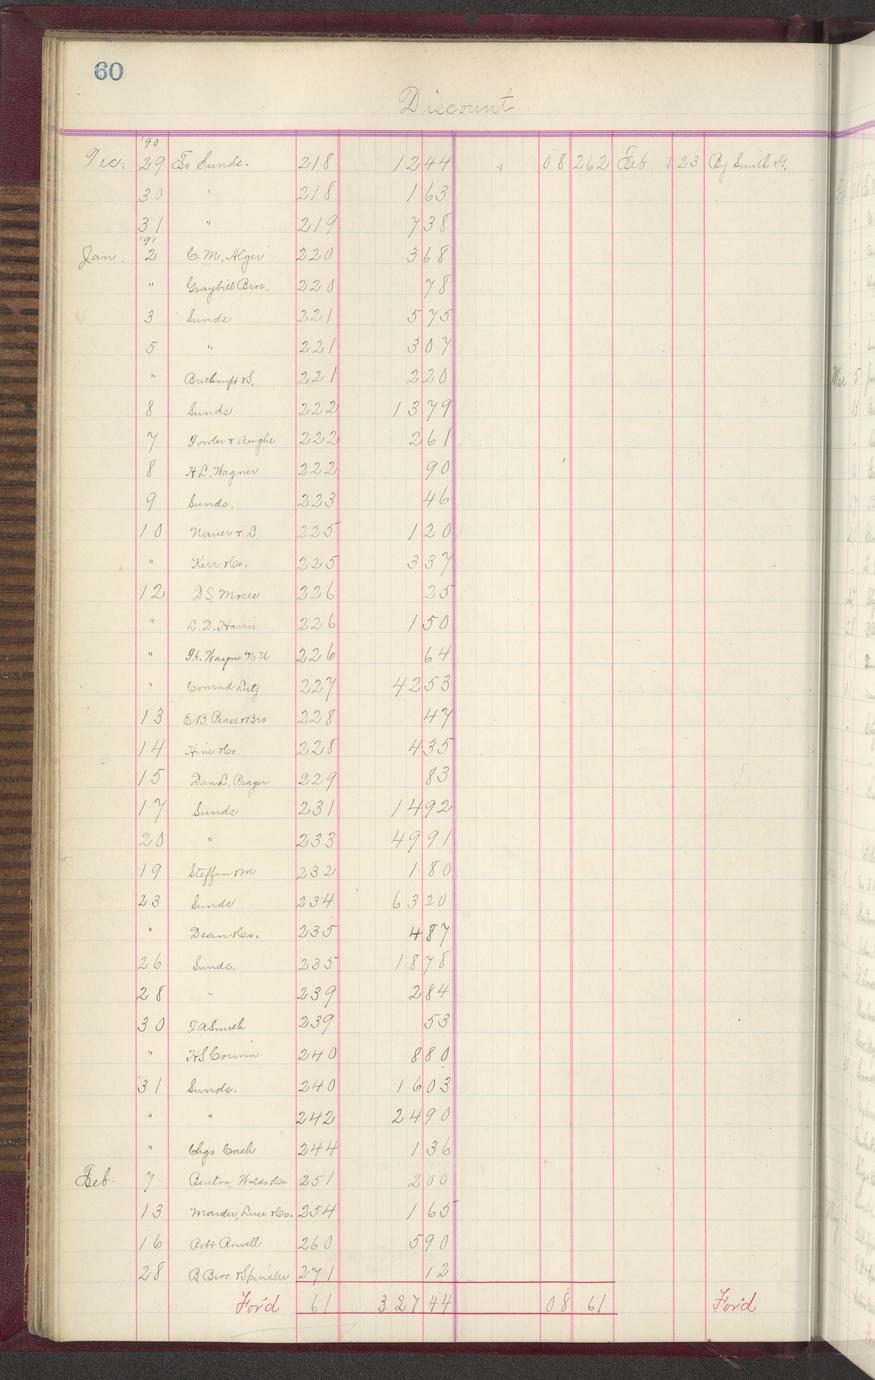 60
Discount
'90
Dec. 29 To Sunds. 218 12 44 08 262 Feb 23 By Smith &
30 " 218 1 63
31 " 219 7 38
'91
Jan. 2 C. M. Alger 220 3 68
" Graybill Bros. 220 78
3 Sunds 221 5 75
5 " 221 3 07
" 221 2 20
8 Sunds 222 13 79
7 Fowler & 222 2 61
8 H L. Wagner 222 90
9 Sunds. 223 46
10 & 225 1 20
" Kerr & Co. 225 3 37
12 D S. Moses 226 25
" L. D. Harris 226 1 50
" Ft. Wayne 226 64
" Conrad Lutz 227 42 53
13 E. B. Pease & Bro 228 47
14 Hine & Co. 228 4 35
15 Dan L. Prager 229 83
17 Sunds 231 14 92
20 " 233 49 91
19 Steffin & M 232 1 80
23 Sunds 234 63 20
" Dean & Co. 235 4 87
26 Sunds. 235 18 78
28 " 239 2 84
30 F A Smith 239 53
" H S Corwin 240 8 80
31 Sunds. 240 16 03
" " 242 24 90
" Chgs Cash 244 1 36
Feb. 7 Benton, Waldo & Co. 251 2 00
13 Marder, Luse & Co. 254 1 65
16 Robt Rowell 260 5 90
28 B Bros. & Spindler 271 12
For'd 61 327 44 08 61 For'd